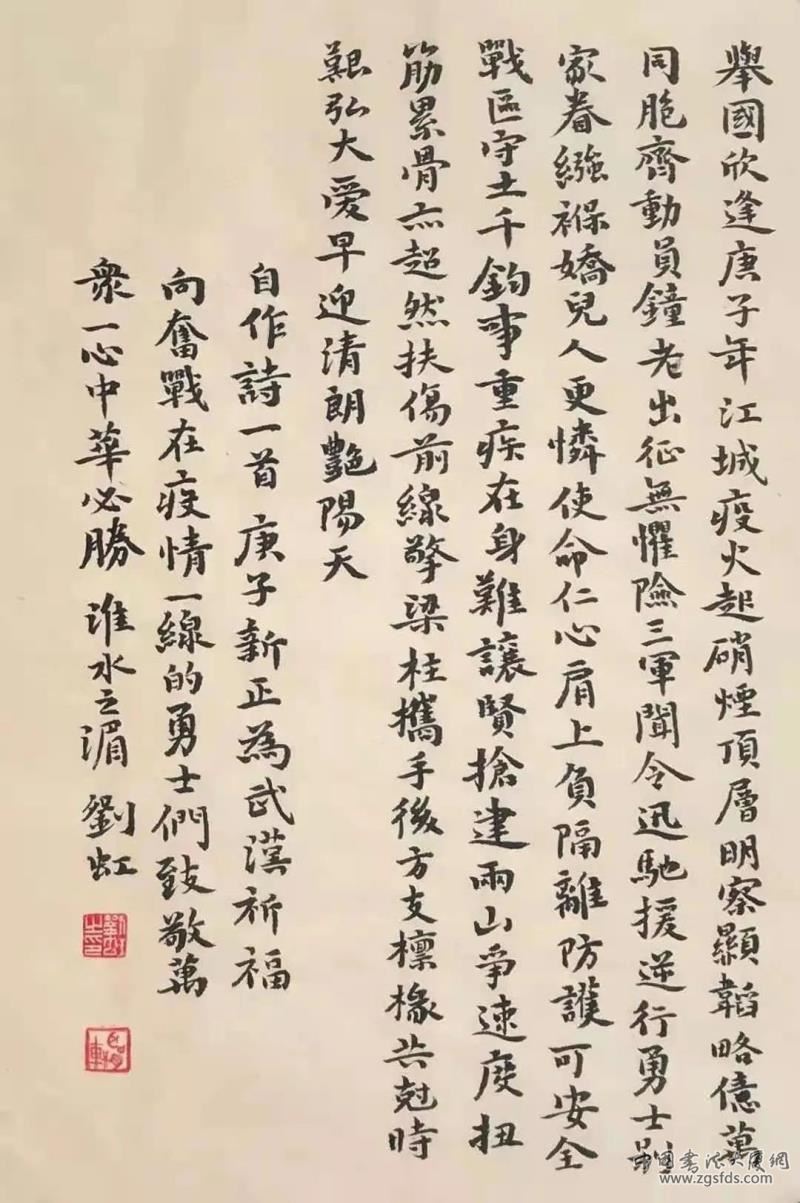 舉國欣逢庚子年江城疫火起硝煙頂層明察顯韜略億萬
同胞齊動員鐘老出征無懼險三軍聞令迅馳援逆行勇士別
家眷繈褓嬌兒人更憐使命仁心肩上負隔離防護可安全
戰區守土千鈞事重疾在身難讓賢搶建兩山爭速度扭
筋累骨亦超然扶傷前線擎梁柱攜手後方支檩椽共尅時
艱弘大愛早迎清朗艷陽天
自作詩一首庚子新正為武漢祈福
向奮戰在疫情一線的勇士們致敬萬
衆一心中華必勝 淮水之湄 劉虹
中國書法大厦網
www.zgsfds.com